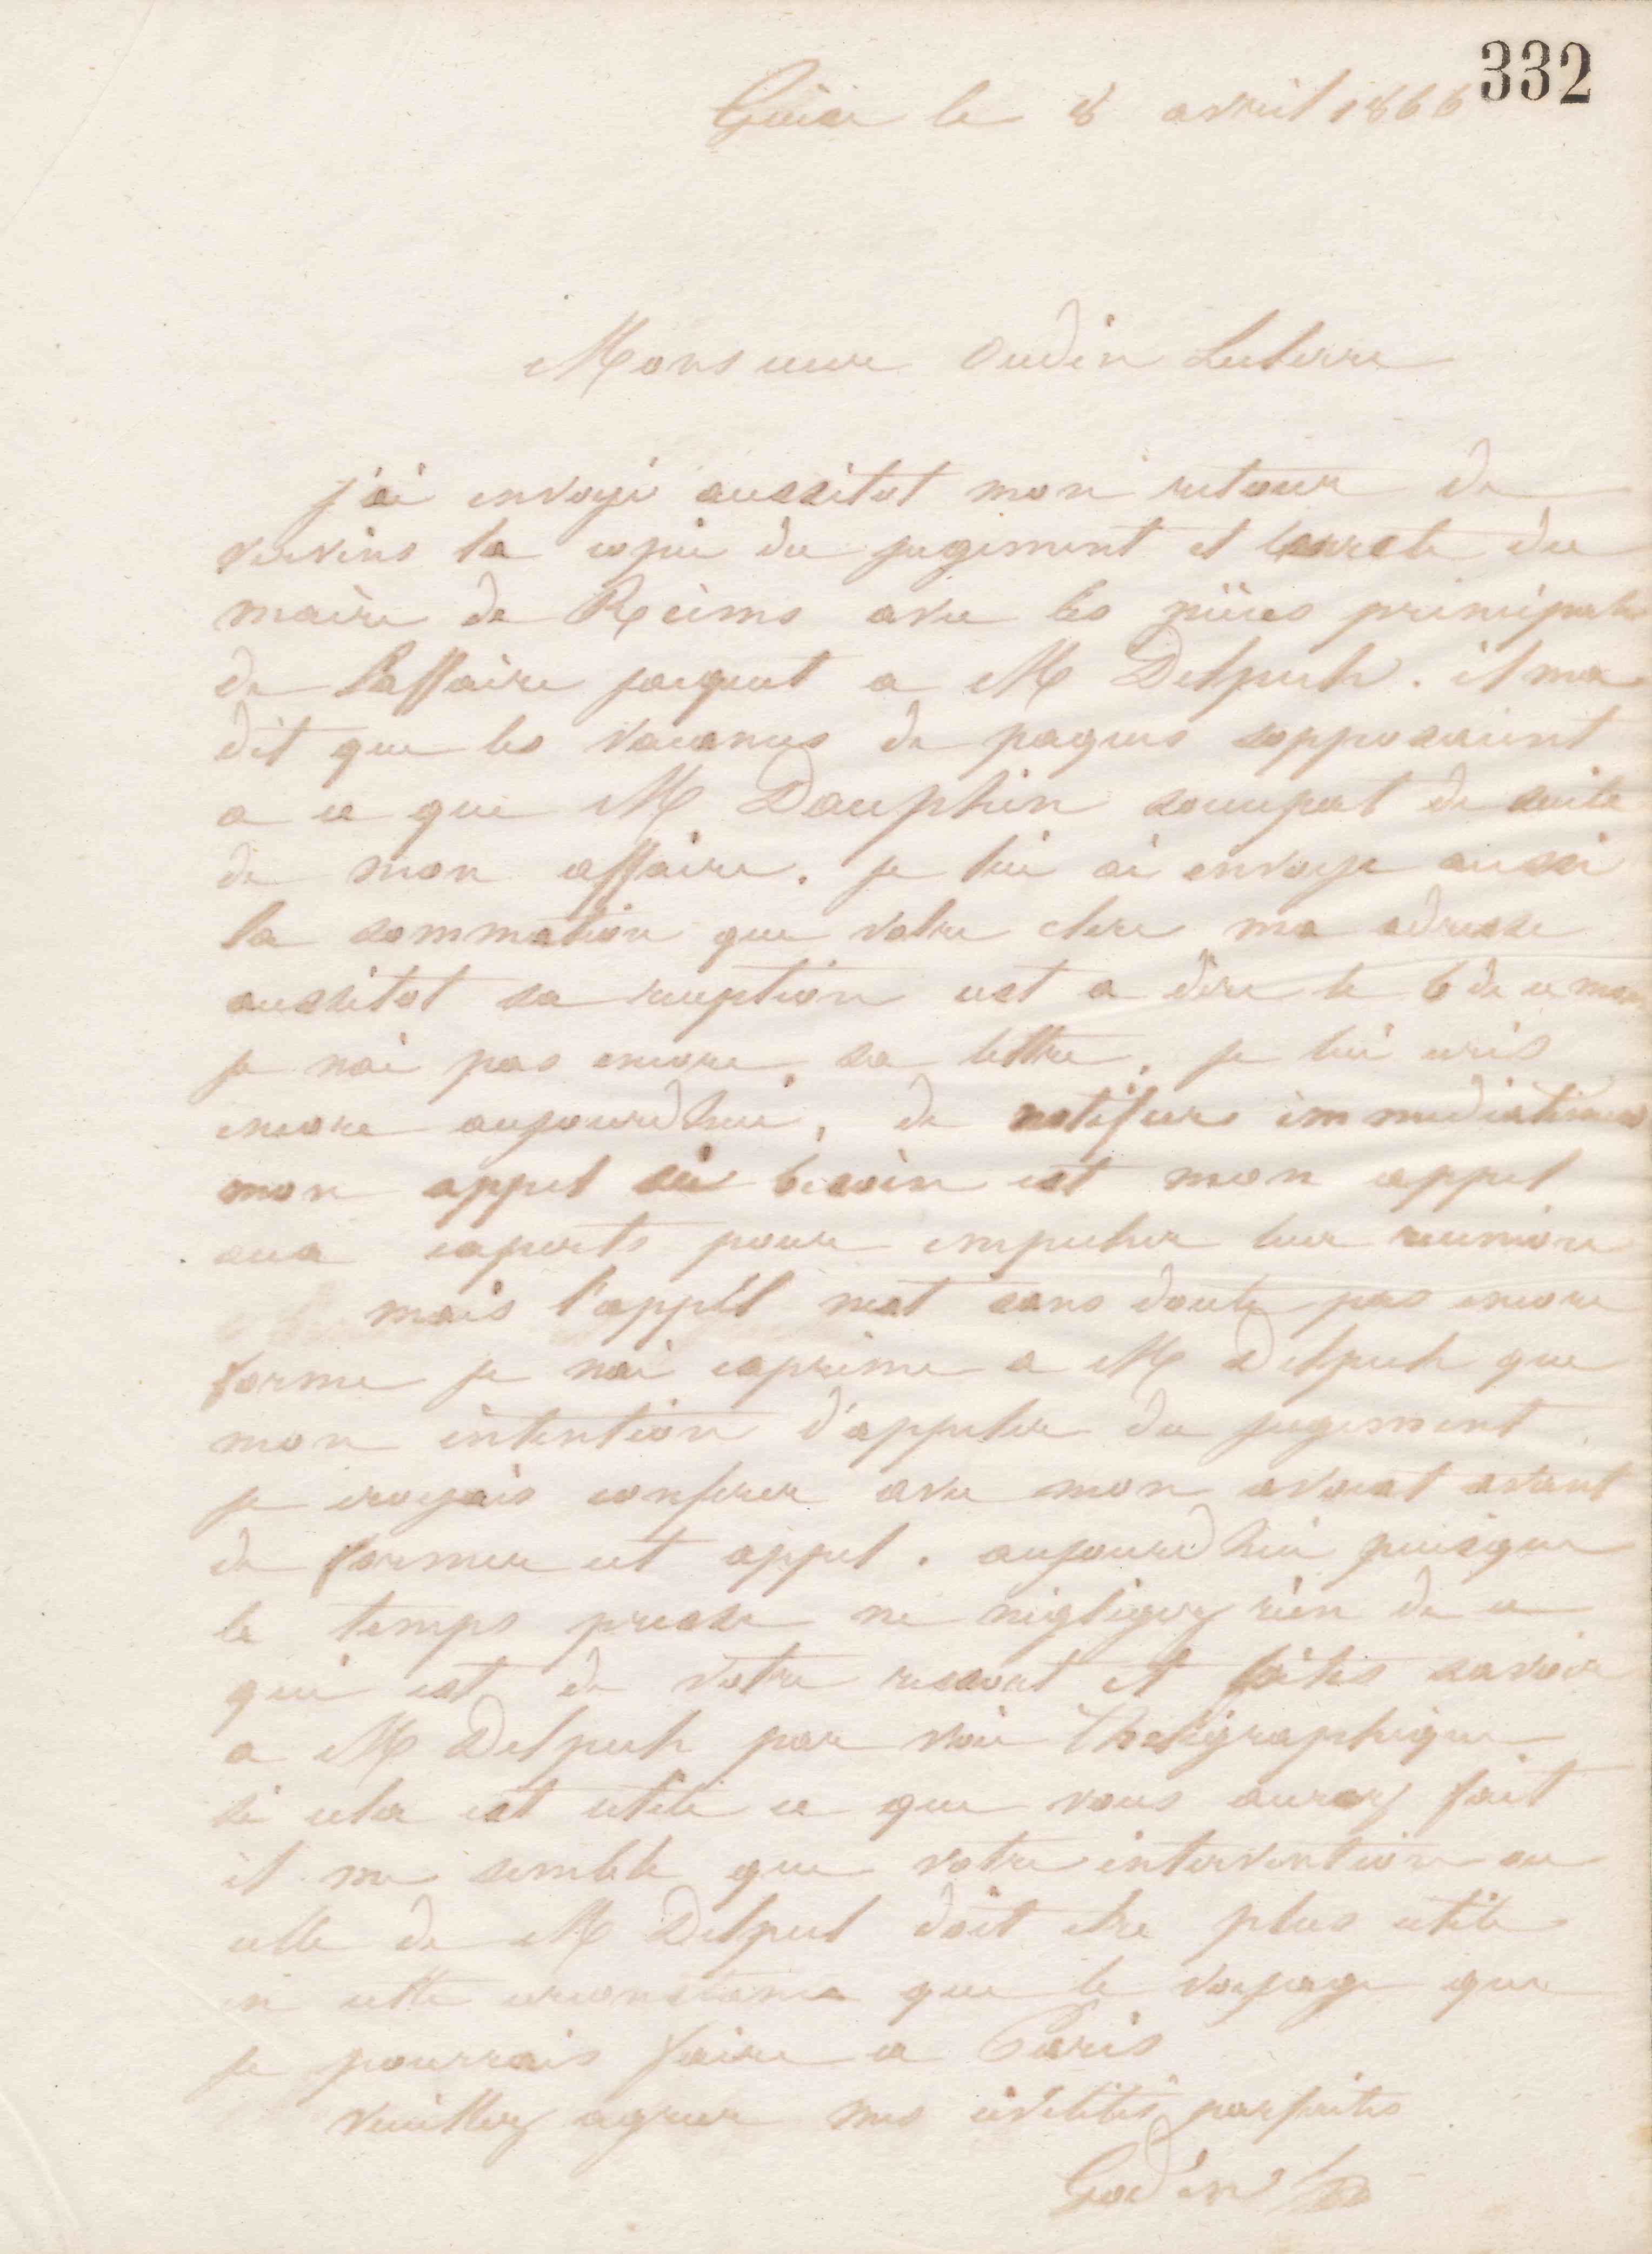 332
Guise le 8 avril 1866
Monsieur Oudin Leclerre
j'ai envoyé aussitot mon retour de
vervins la copie du jugement et du
maire de Reims avec les pièces principales
de l'affaire jacquet a M Delpech. il ma
dit que les vacances de paques sopposaient
a ce que M Dauphin soccupat de suite
de mon affaire. je lui ai envoye aussi
la sommation que votre clerc ma adresse
aussitot sa reception cest a dire le 6 de ce mois
je nai pas encore sa lettre. je lui ecris
encore aujourdhui, de notifier immediatement
mon appel si besoin est mon appel
aux experts pour empecher leur reunion
mais l'appél nest sans doute pas encore
forme je nai exprime a M Delpech que
mon intention d'appeler du jugement
je croyais conferer avec mon avocat avant
de former cet appel. aujourdhui puisque
le temps presse ne négligez rien de ce
qui est de votre ressort et faites savoir
a M Delpech par voie théligraphique
si cela est utile ce que vous aurez fait
il me semble que votre intervention ou
celle de M Delpech doit etre plus utile
en cette circonstance que le voyage que
je pourrais faire a Paris
veuillez agreer mes civilités parfaites
Godin